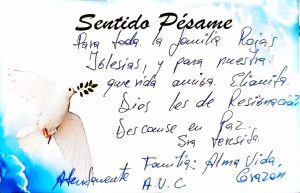 Sentido Pésame
Para toda la familia Rojas
Iglesias, y para nuestra
querida amiga. Elianita.
Dios les de Resignación
Descanse en Paz.
Sra Teresita.
Atentamente Familia: Alma, Vida,
Corazon
A.V.C